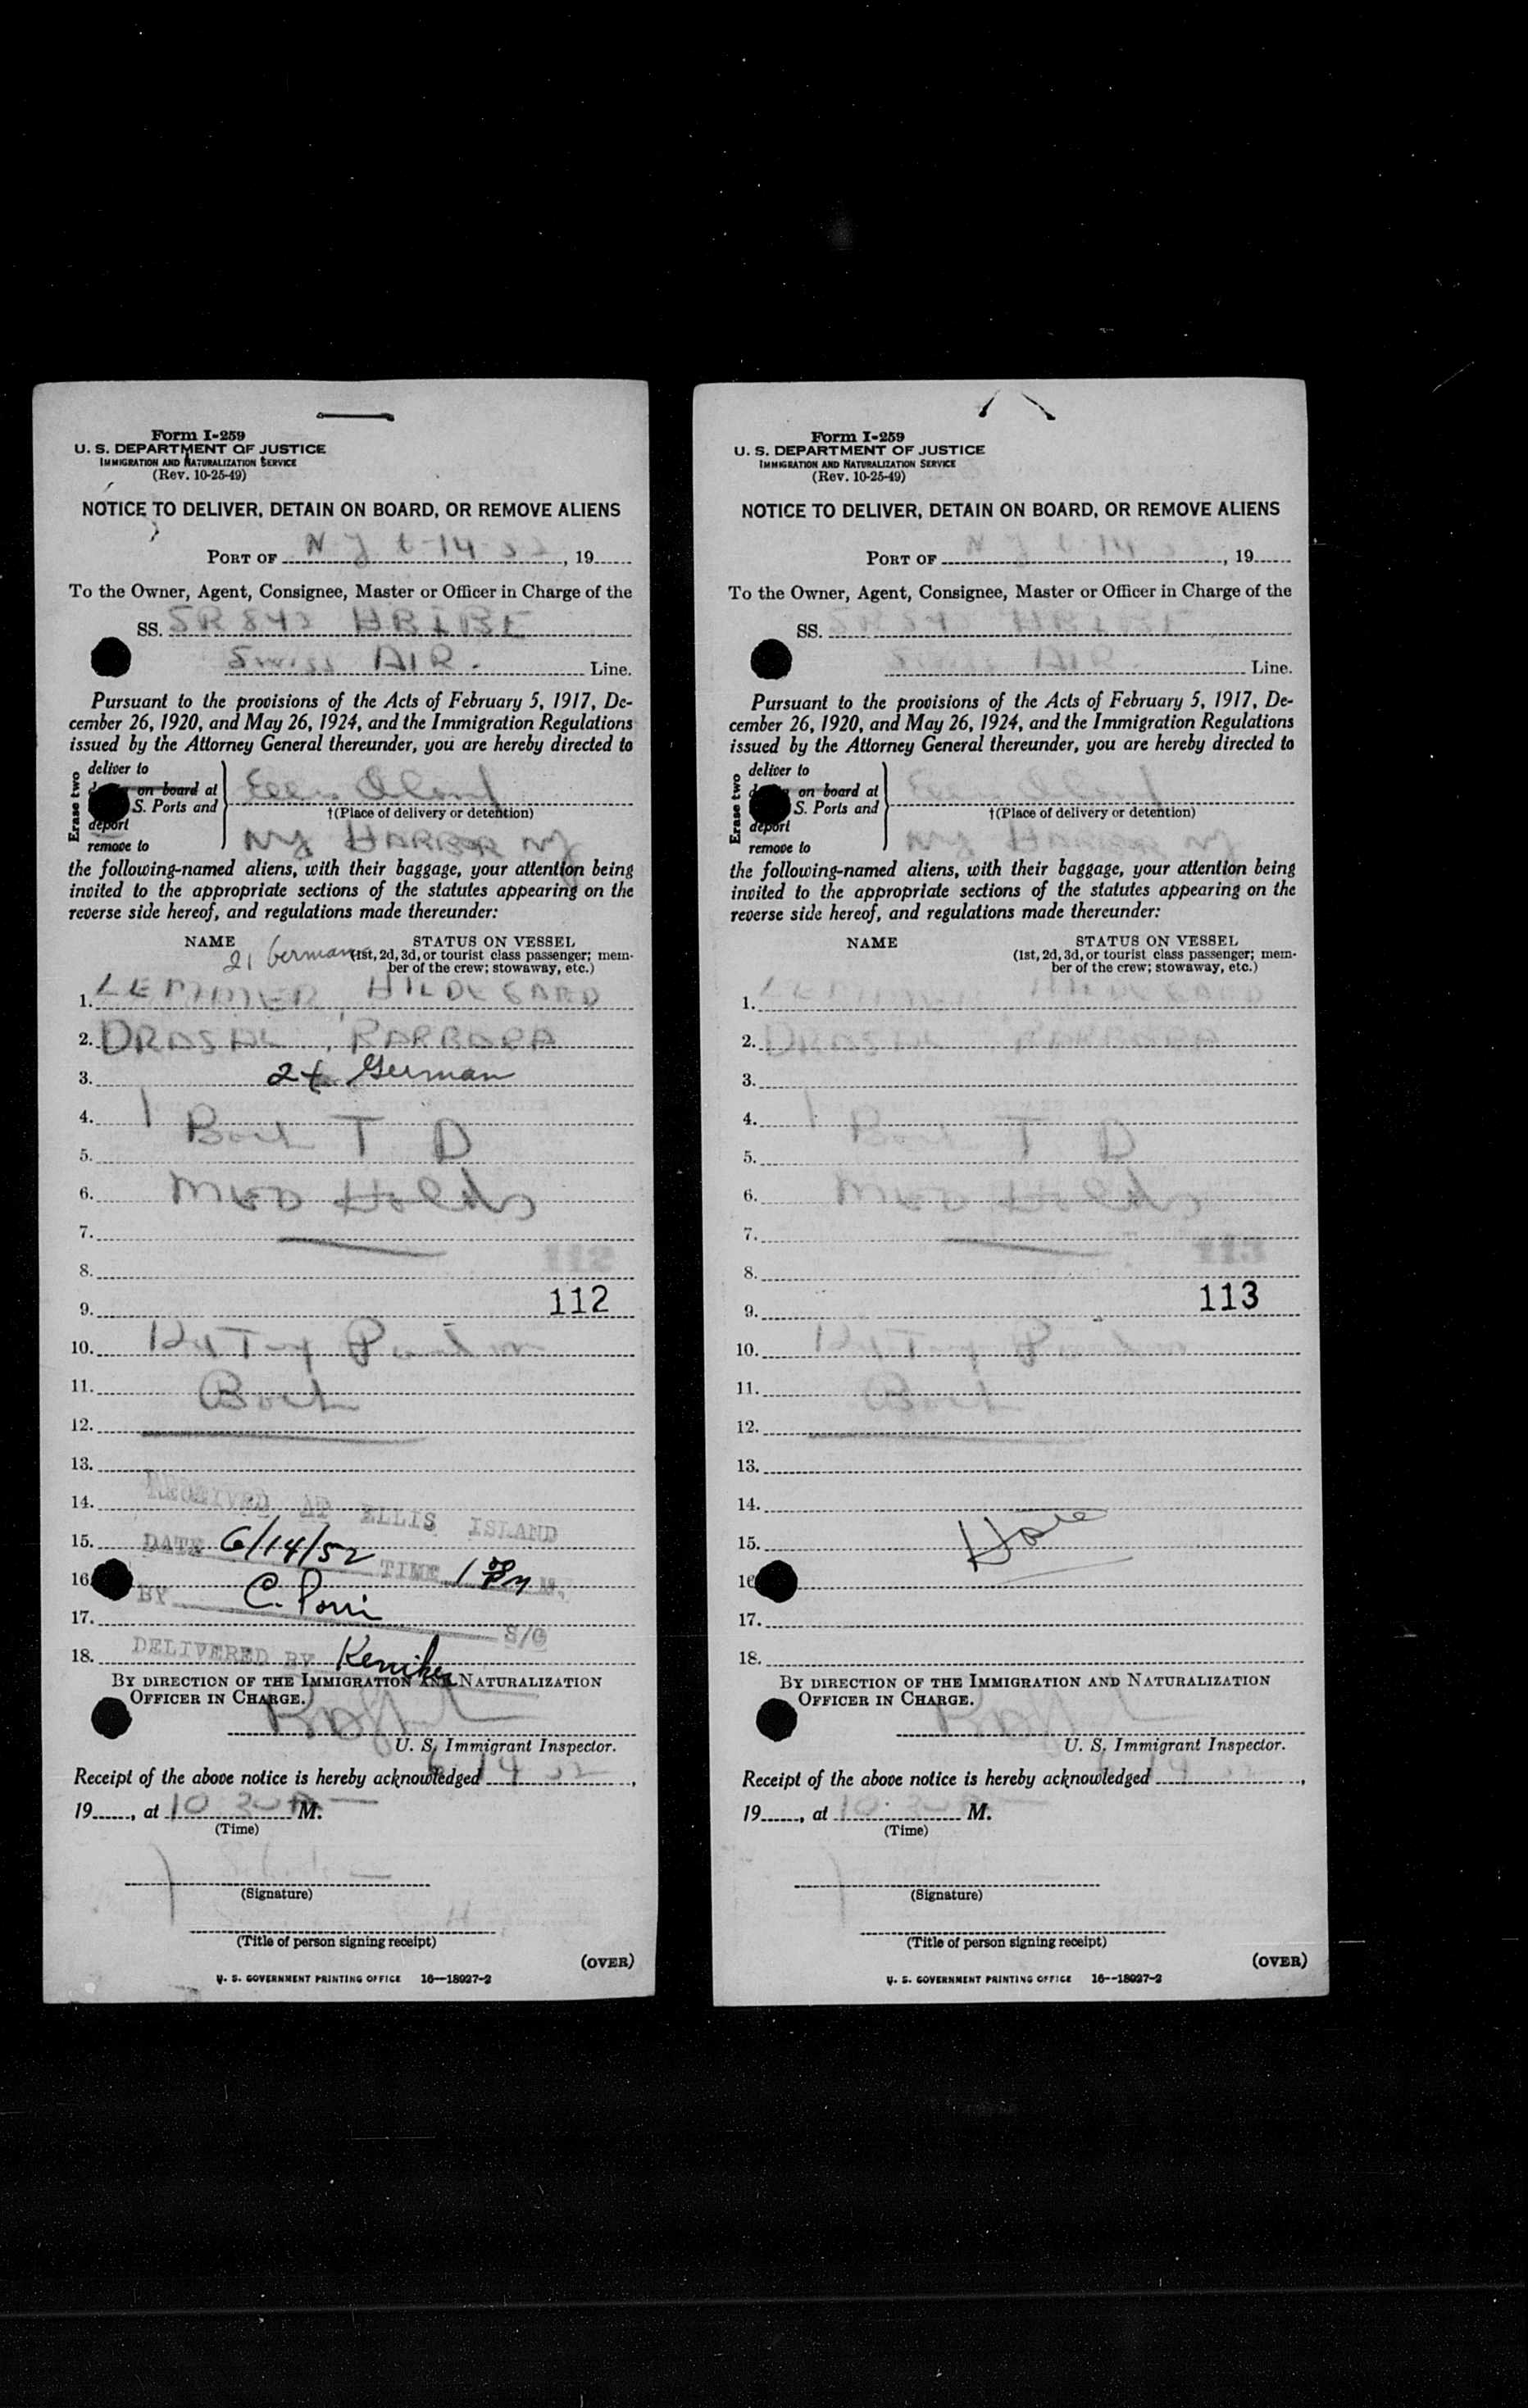 Form I-259
U. S. DEPARTMENT OF JUSTICE
IMMIGRATION AND NATURALIZATION SERVICE
(Rev. 10-25-49)
NOTICE TO DELIVER, DETAIN ON BOARD, OR REMOVE ALIENS
PORT OF N Y 6-14-52, 19
To the Owner, Agent, Consignee, Master or Officer in Charge of the
SS. SR 842
Swiss AIR. Line.
Pursuant to the provisions of the Acts of February 5, 1917, De-
cember 26, 1920, and May 26, 1924, and the Immigration Regulations
issued by the Attorney General thereunder, you are hereby directed to
Erase two
deliver to
on board at
S. Ports and
deport
remove to
Ellis Island
†(Place of delivery or detention)
NY HARBOR NY
the following-named aliens, with their baggage, your attention being
invited to the appropriate sections of the statutes appearing on the
reverse side hereof, and regulations made thereunder:
NAME
STATUS ON VESSEL
(1st, 2d, 3d, or tourist class passenger; mem-
ber of the crew; stowaway, etc.)
21 German
1. HILDEGARD
2. BARBARA
3. 24 German
4.
Both T D
5.
6. MED Holds
7.
8.
112
9. 112
10.
11. Both
12.
13.
14. RECEIVED AT ELLIS ISLAND
15. DATE 6/14/52 TIME 1 00 PM M.
16. BY C.
17. S/O
18. DELIVERED BY
BY DIRECTION OF THE IMMIGRATION AND NATURALIZATION
OFFICER IN CHARGE.
U. S. Immigrant Inspector.
Receipt of the above notice is hereby acknowledged 6 14 52,
19, at 10 30 A M.
(Time)
(Signature)
(Title of person signing receipt)
(OVER)
U. S. GOVERNMENT PRINTING OFFICE 16—18027-2
Form I-259
U. S. DEPARTMENT OF JUSTICE
IMMIGRATION AND NATURALIZATION SERVICE
(Rev. 10-25-49)
NOTICE TO DELIVER, DETAIN ON BOARD, OR REMOVE ALIENS
PORT OF N Y 6-14-52, 19
To the Owner, Agent, Consignee, Master or Officer in Charge of the
SS. SR 842
Swiss AIR. Line.
Pursuant to the provisions of the Acts of February 5, 1917, De-
cember 26, 1920, and May 26, 1924, and the Immigration Regulations
issued by the Attorney General thereunder, you are hereby directed to
Erase two
deliver to
on board at
S. Ports and
deport
remove to
Ellis Island
†(Place of delivery or detention)
NY HARBOR NY
the following-named aliens, with their baggage, your attention being
invited to the appropriate sections of the statutes appearing on the
reverse side hereof, and regulations made thereunder:
NAME
STATUS ON VESSEL
(1st, 2d, 3d, or tourist class passenger; mem-
ber of the crew; stowaway, etc.)
1. HILDEGARD
2. BARBARA
3.
4.
Both T D
5.
6. MED Holds
7.
113
8.
9. 113
10.
11. Both
12.
13.
14.
15.
16
17.
18.
BY DIRECTION OF THE IMMIGRATION AND NATURALIZATION
OFFICER IN CHARGE.
U. S. Immigrant Inspector.
Receipt of the above notice is hereby acknowledged 14 52,
19, at 10 30 A M.
(Time)
(Signature)
(Title of person signing receipt)
(OVER)
U. S. GOVERNMENT PRINTING OFFICE 16—18027-2